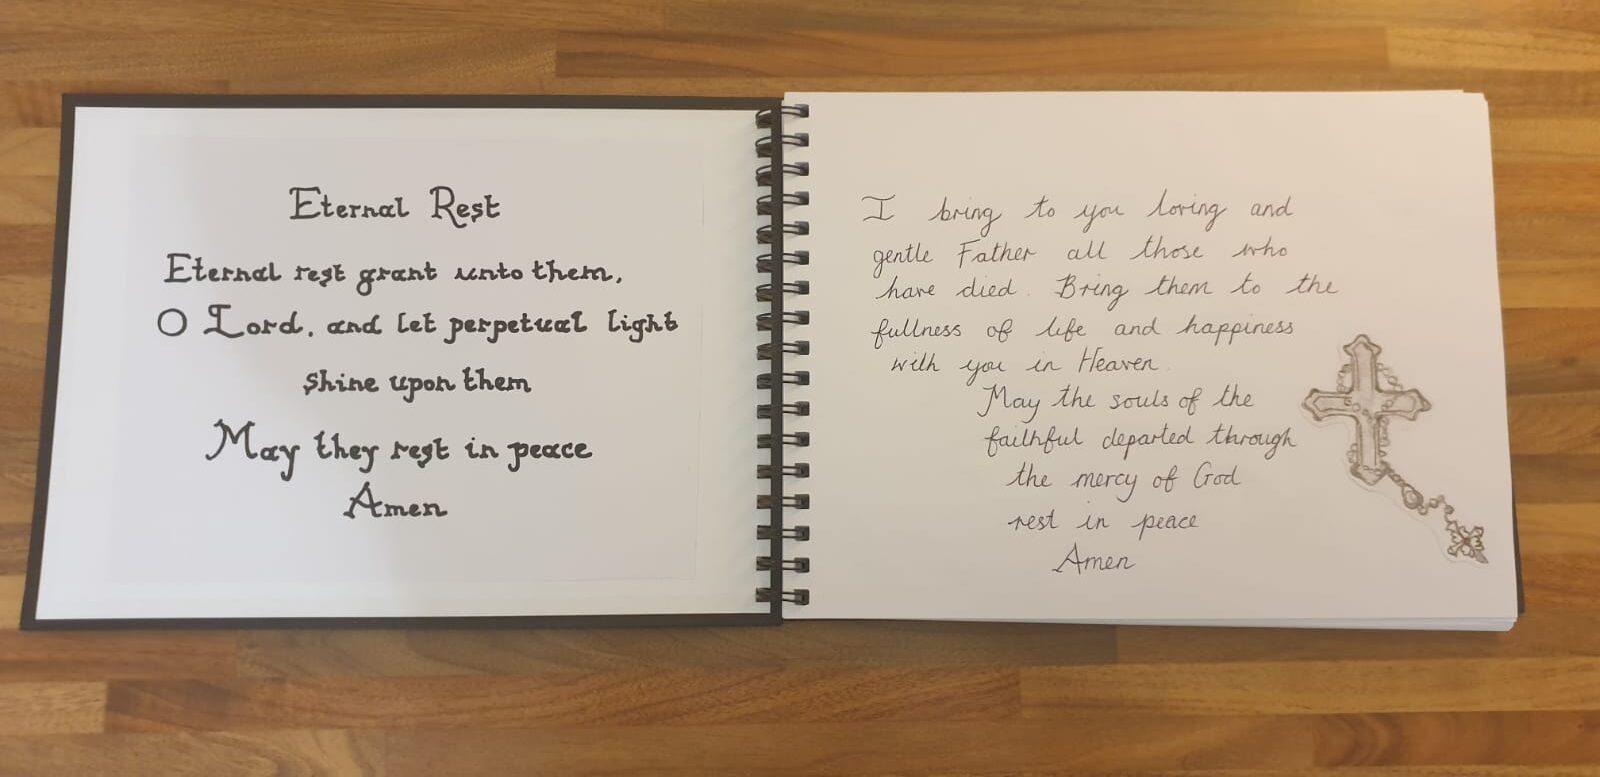 Eternal Rest
Eternal rest grant unto them,
O Lord, and let perpetual light
shine upon them
May they rest in peace
Amen
I bring to you loving and
gentle Father all those who
have died. Bring them to the
fullness of life and happiness
with you in Heaven.
May the souls of the
faithful departed through
the mercy of God
rest in peace
Amen